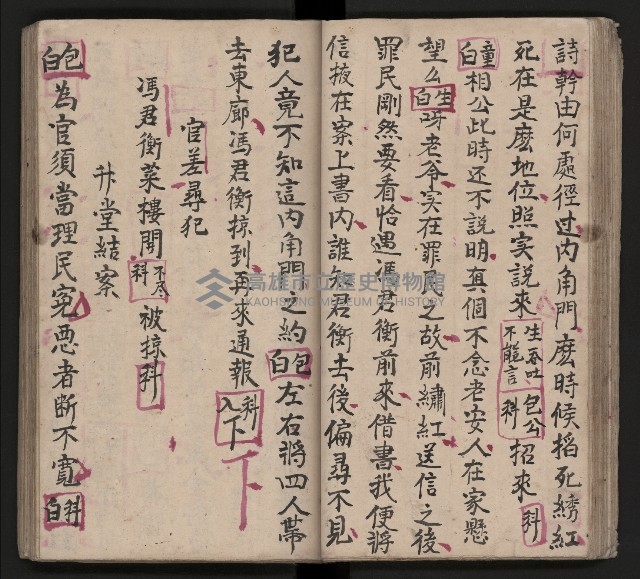 詩幹由何處徑过内角門麽時候掐死綉紅
死在是麽地位照实說来生吞吐不能言科包公招来科
童白相公此時还不說明真個不念老安人在家懸
望么生白呀老爷实在罪民之故前繡紅送信之後
罪民剛然要看恰遇馮君衡前来借書我便將
信掖在案上書内誰知君衡去後偏尋不見
犯人竟不知這内角門之約包白左右將四人帯
去東廊馮君衡掠到再来通報科入下下
官差尋犯
馮君衡菜樓閣不尽科被掠科
升堂結案
包白為官須當理民冤恶者断不寬科白
高雄市立歷史博物館
KAOHSIUNG MUSEUM OF HISTORY